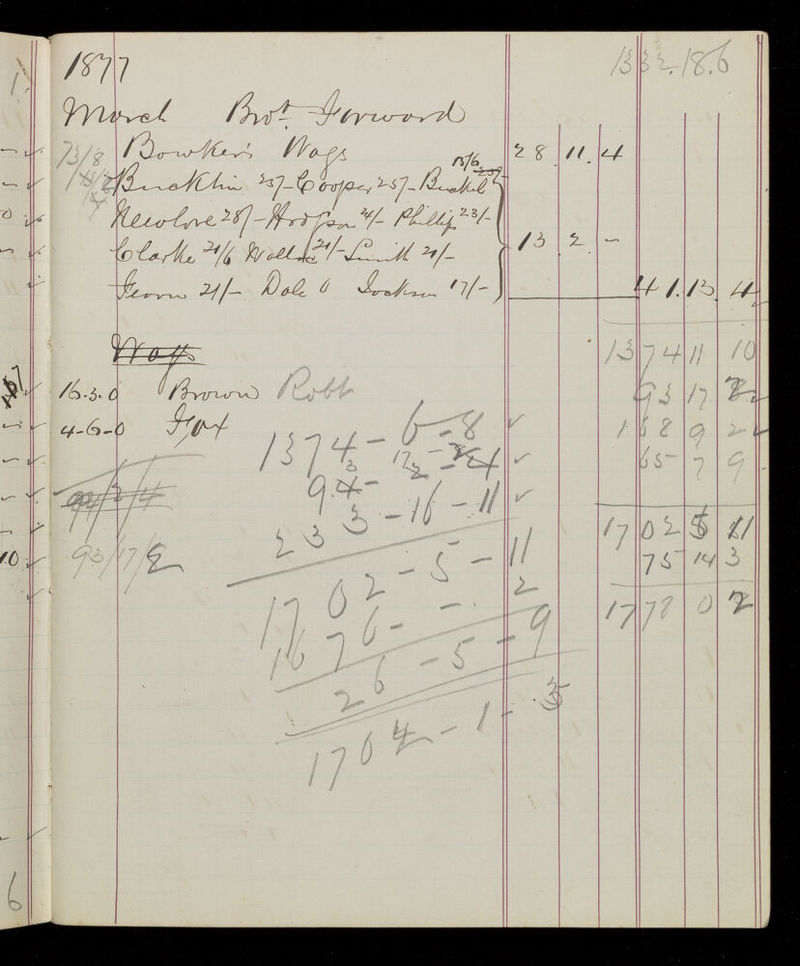 1877
332.18.6
March Brot. Forward
73/8 Bowker's Wags 28 11. 4
15/6
Bucklin 25/- Cooper 25/- Buckel
Newlove 28/- Hodgson 4/- Phillip 23/-
Clarke 21/6 Wallace 21/- Smith 21/- 13 2 -
21/- Dale 0 Jackson 17/- 41.13.4
Wags
1374 11 10
16.3.0 Brown Robt 93 17
4-6-0 Fox 168 9 2
1374 - 6 - 8 65 7 9
93 - 17
94/2/4
233 - 16 - 11
1702 5 11
93/17/2
75 14 3
1702 - 5 - 11
1778 0 2
1676 - - . 2
26 - 5 - 9
1704 - 1 - 3
10
6